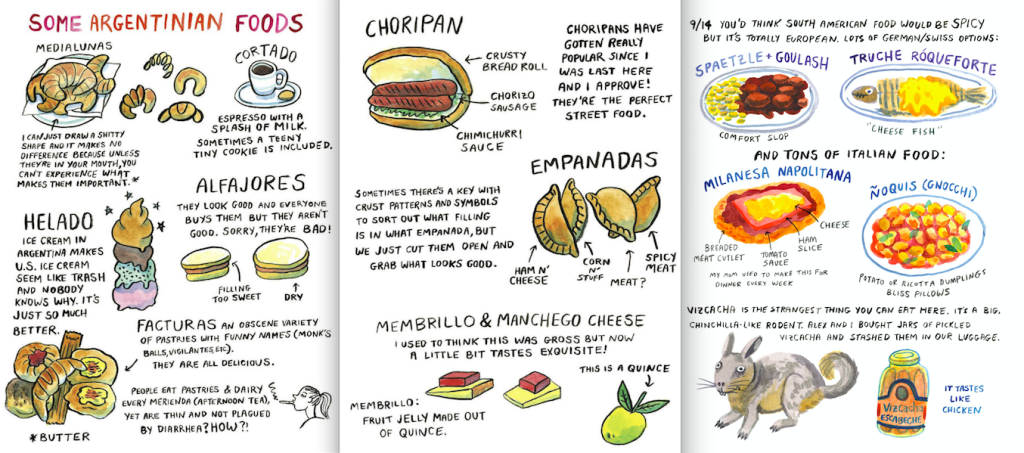 SOME ARGENTINIAN FOODS
MEDIALUNAS
I CAN JUST DRAW A SHITTY
SHAPE AND IT MAKES NO
DIFFERENCE BECAUSE UNLESS
THEY'RE IN YOUR MOUTH, YOU
CAN'T EXPERIENCE WHAT
MAKES THEM IMPORTANT.*
CORTADO
ESPRESSO WITH A
SPLASH OF MILK.
SOMETIMES A TEENY
TINY COOKIE IS INCLUDED.
ALFAJORES
THEY LOOK GOOD AND EVERYONE
BUYS THEM BUT THEY AREN'T
GOOD. SORRY, THEY'RE BAD!
FILLING
TOO SWEET
DRY
HELADO
ICE CREAM IN
ARGENTINA MAKES
U.S. ICE CREAM
SEEM LIKE TRASH
AND NOBODY
KNOWS WHY. IT'S
JUST SO MUCH
BETTER.
FACTURAS AN OBSCENE VARIETY
OF PASTRIES WITH FUNNY NAMES (MONK'S
BALLS, VIGILANTES, ETC).
THEY ARE ALL DELICIOUS.
PEOPLE EAT PASTRIES & DAIRY
EVERY MERIENDA (AFTERNOON TEA),
YET ARE THIN AND NOT PLAGUED
BY DIARRHEA? HOW?!
*BUTTER
CHORIPAN
CRUSTY
BREAD ROLL
CHORIZO
SAUSAGE
CHIMICHURRI
SAUCE
CHORIPANS HAVE
GOTTEN REALLY
POPULAR SINCE I
WAS LAST HERE
AND I APPROVE!
THEY'RE THE PERFECT
STREET FOOD.
EMPANADAS
SOMETIMES THERE'S A KEY WITH
CRUST PATTERNS AND SYMBOLS
TO SORT OUT WHAT FILLING
IS IN WHAT EMPANADA, BUT
WE JUST CUT THEM OPEN AND
GRAB WHAT LOOKS GOOD.
HAM N'
CHEESE
CORN
N'
STUFF
MEAT?
SPICY
MEAT
MEMBRILLO & MANCHEGO CHEESE
I USED TO THINK THIS WAS GROSS BUT NOW
A LITTLE BIT TASTES EXQUISITE!
THIS IS A QUINCE
MEMBRILLO:
FRUIT JELLY MADE OUT
OF QUINCE.
9/14 YOU'D THINK SOUTH AMERICAN FOOD WOULD BE SPICY
BUT IT'S TOTALLY EUROPEAN. LOTS OF GERMAN/SWISS OPTIONS:
SPAETZLE + GOULASH
COMFORT SLOP
TRUCHE RÓQUEFORTE
"CHEESE FISH"
AND TONS OF ITALIAN FOOD:
MILANESA NAPOLITANA
CHEESE
HAM
SLICE
TOMATO
SAUCE
BREADED
MEAT CUTLET
MY MOM USED TO MAKE THIS FOR
DINNER EVERY WEEK
ÑOQUIS (GNOCCHI)
POTATO OR RICOTTA DUMPLINGS
BLISS PILLOWS
VIZCACHA IS THE STRANGEST THING YOU CAN EAT HERE. IT'S A BIG,
CHINCHILLA-LIKE RODENT. ALEX AND I BOUGHT JARS OF PICKLED
VIZCACHA AND STASHED THEM IN OUR LUGGAGE.
VIZCACHA
ESCABECHE
IT TASTES
LIKE
CHICKEN